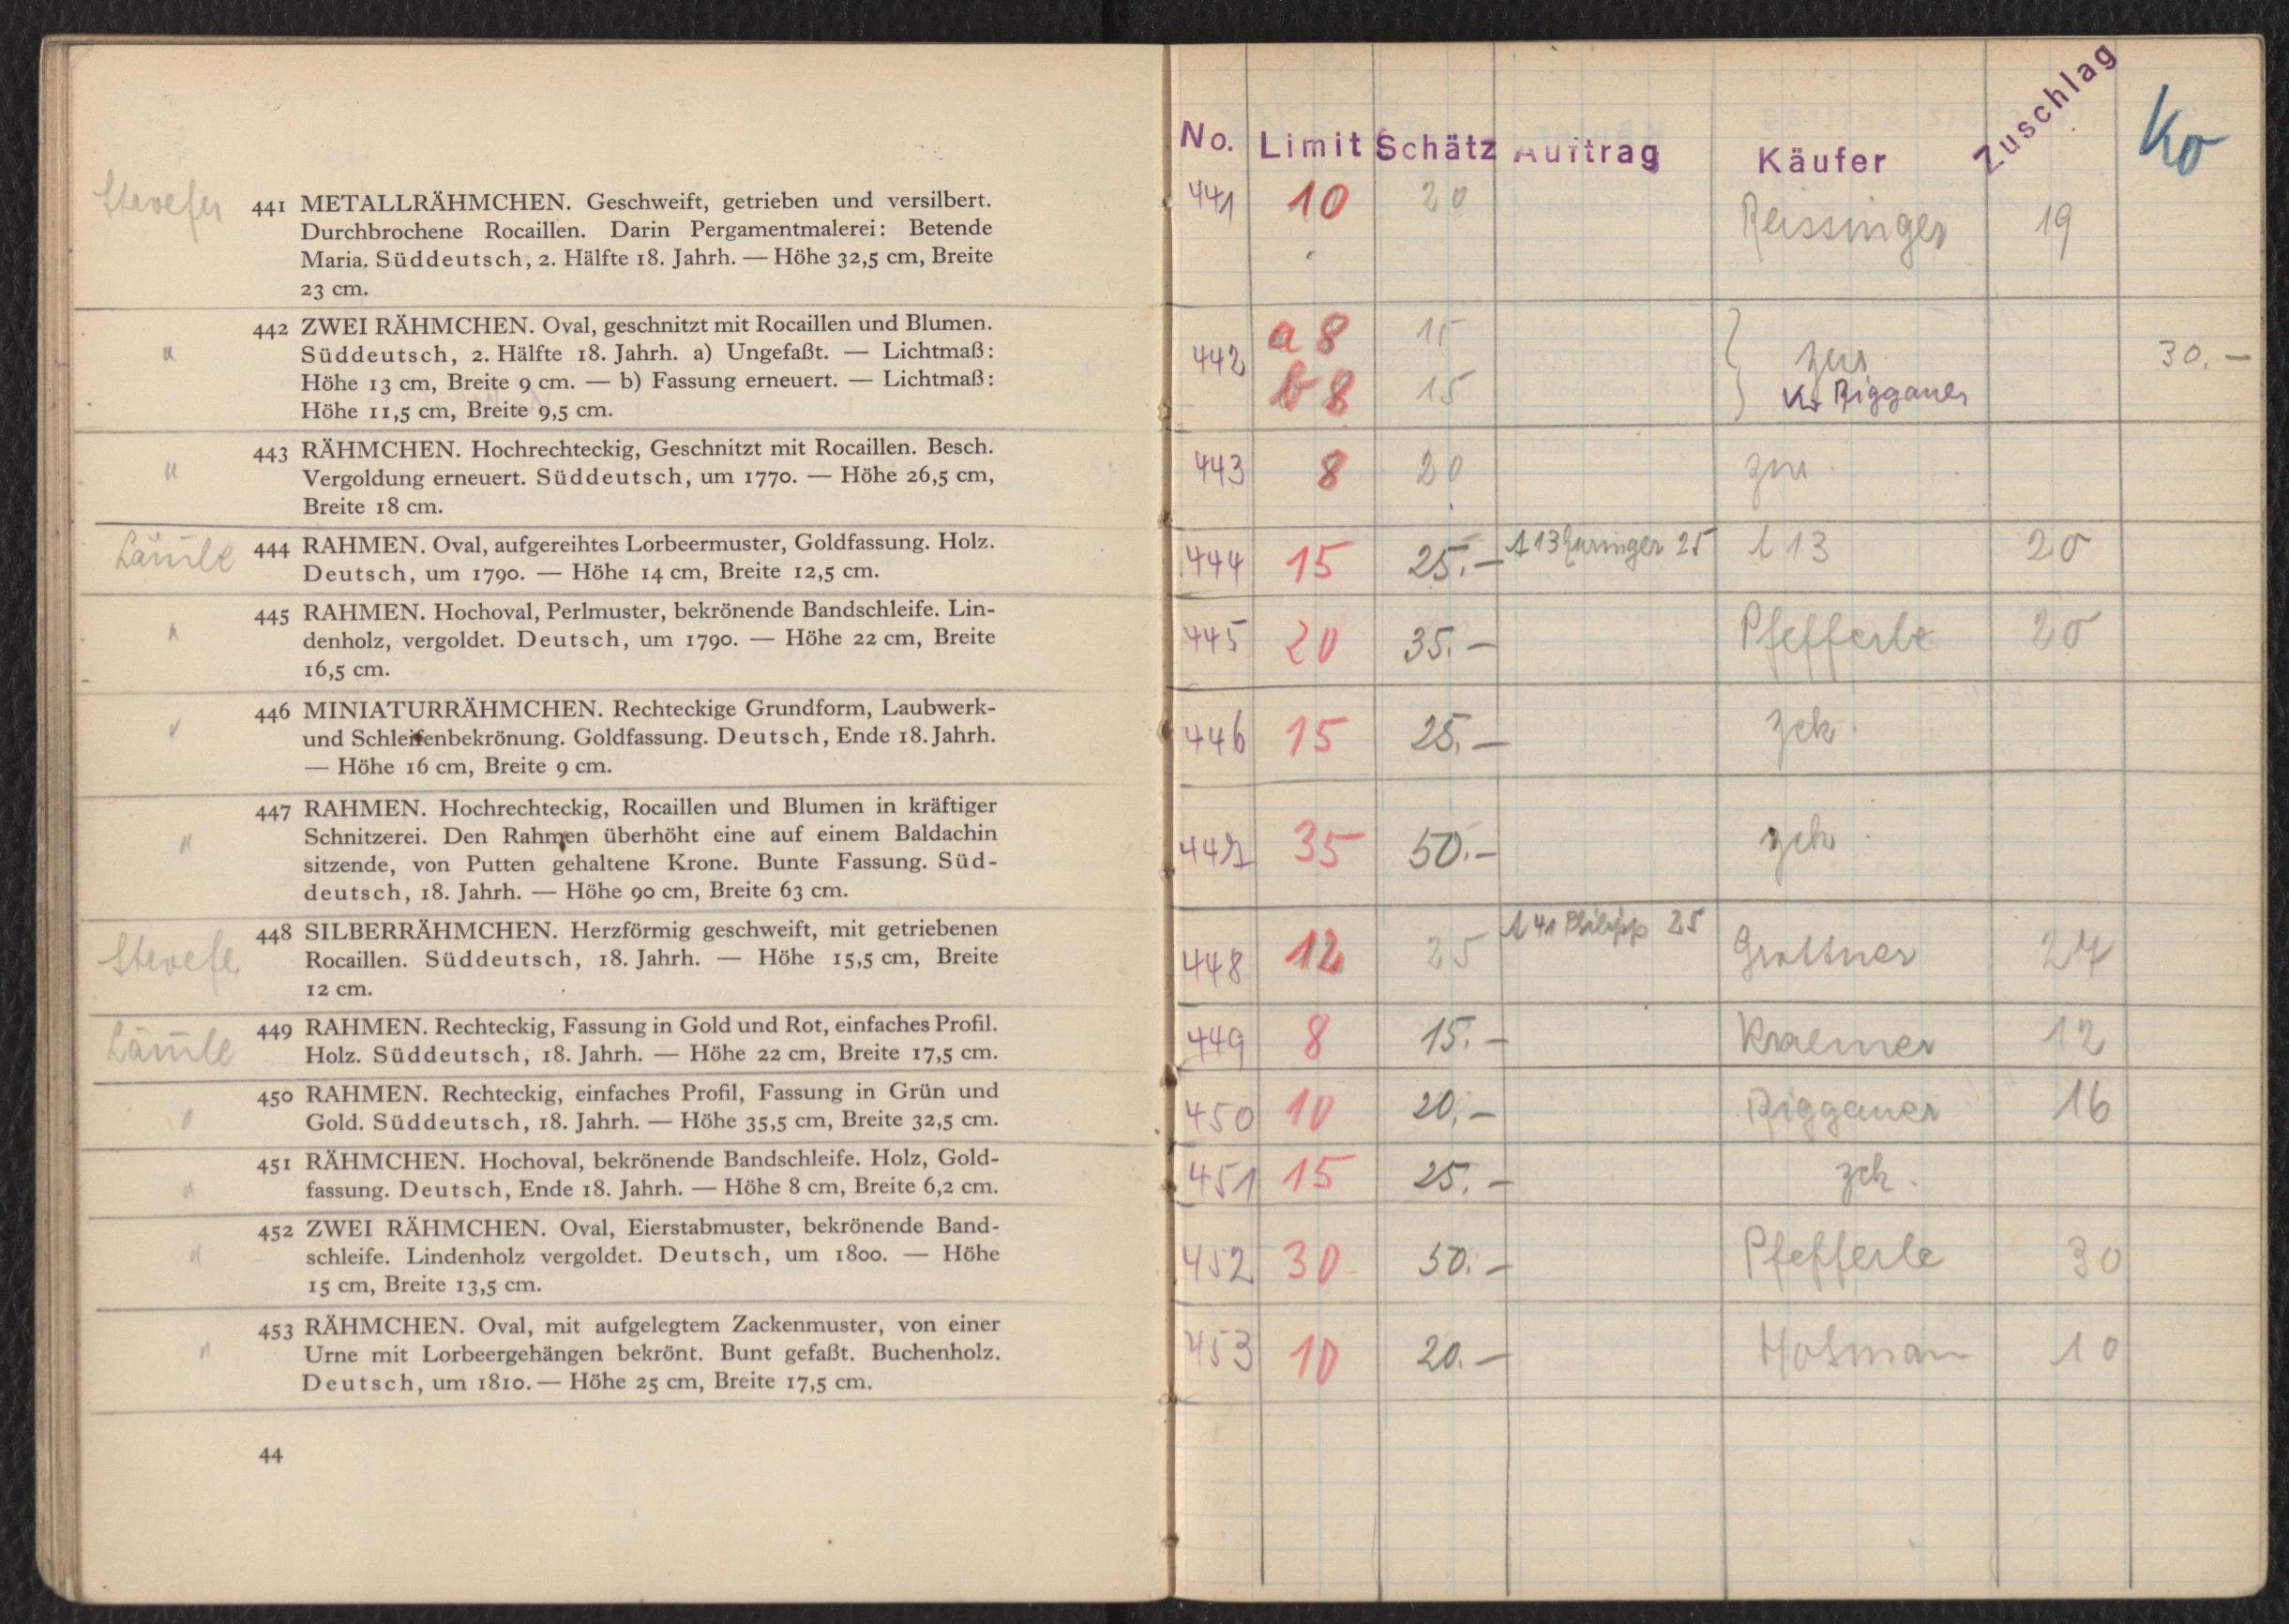 441 METALLRÄHMCHEN. Geschweift, getrieben und versilbert.
Durchbrochene Rocaillen. Darin Pergamentmalerei: Betende
Maria. Süddeutsch, 2. Hälfte 18. Jahrh. — Höhe 32,5 cm, Breite
23 cm.
"
442 ZWEI RÄHMCHEN. Oval, geschnitzt mit Rocaillen und Blumen.
Süddeutsch, 2. Hälfte 18. Jahrh. a) Ungefaßt. — Lichtmaß:
Höhe 13 cm, Breite 9 cm. — b) Fassung erneuert. — Lichtmaß:
Höhe 11,5 cm, Breite 9,5 cm.
"
443 RÄHMCHEN. Hochrechteckig, Geschnitzt mit Rocaillen. Besch.
Vergoldung erneuert. Süddeutsch, um 1770. — Höhe 26,5 cm,
Breite 18 cm.
Lämle
444 RAHMEN. Oval, aufgereihtes Lorbeermuster, Goldfassung. Holz.
Deutsch, um 1790. — Höhe 14 cm, Breite 12,5 cm.
"
445 RAHMEN. Hochoval, Perlmuster, bekrönende Bandschleife. Lin-
denholz, vergoldet. Deutsch, um 1790. — Höhe 22 cm, Breite
16,5 cm.
"
446 MINIATURRÄHMCHEN. Rechteckige Grundform, Laubwerk-
und Schleifenbekrönung. Goldfassung. Deutsch, Ende 18. Jahrh.
— Höhe 16 cm, Breite 9 cm.
"
447 RAHMEN. Hochrechteckig, Rocaillen und Blumen in kräftiger
Schnitzerei. Den Rahmen überhöht eine auf einem Baldachin
sitzende, von Putten gehaltene Krone. Bunte Fassung. Süd-
deutsch, 18. Jahrh. — Höhe 90 cm, Breite 63 cm.
448 SILBERRÄHMCHEN. Herzförmig geschweift, mit getriebenen
Rocaillen. Süddeutsch, 18. Jahrh. — Höhe 15,5 cm, Breite
12 cm.
Lämle
449 RAHMEN. Rechteckig, Fassung in Gold und Rot, einfaches Profil.
Holz. Süddeutsch, 18. Jahrh. — Höhe 22 cm, Breite 17,5 cm.
"
450 RAHMEN. Rechteckig, einfaches Profil, Fassung in Grün und
Gold. Süddeutsch, 18. Jahrh. — Höhe 35,5 cm, Breite 32,5 cm.
"
451 RÄHMCHEN. Hochoval, bekrönende Bandschleife. Holz, Gold-
fassung. Deutsch, Ende 18. Jahrh. — Höhe 8 cm, Breite 6,2 cm.
"
452 ZWEI RÄHMCHEN. Oval, Eierstabmuster, bekrönende Band-
schleife. Lindenholz vergoldet. Deutsch, um 1800. — Höhe
15 cm, Breite 13,5 cm.
"
453 RÄHMCHEN. Oval, mit aufgelegtem Zackenmuster, von einer
Urne mit Lorbeergehängen bekrönt. Bunt gefaßt. Buchenholz.
Deutsch, um 1810. — Höhe 25 cm, Breite 17,5 cm.
44
No. Limit Schätz Auftrag Käufer Zuschlag Ko
441 10 20 Reissinger 19
442 a 8 15 zur 30.—
b 8 15 Kr Riggauer
443 8 20 zur
444 15 25.— 113 25 113 20
445 20 35.— Pfefferle 20
446 15 25.— zck
447 35 50.— zck
448 12 25 141 Philipp 25 Grottner 27
449 8 15.— Kraemer 12
450 10 20.— Riggauer 16
451 15 25.— zck.
452 30 50.— Pfefferle 30
453 10 20.— Hofmann 10